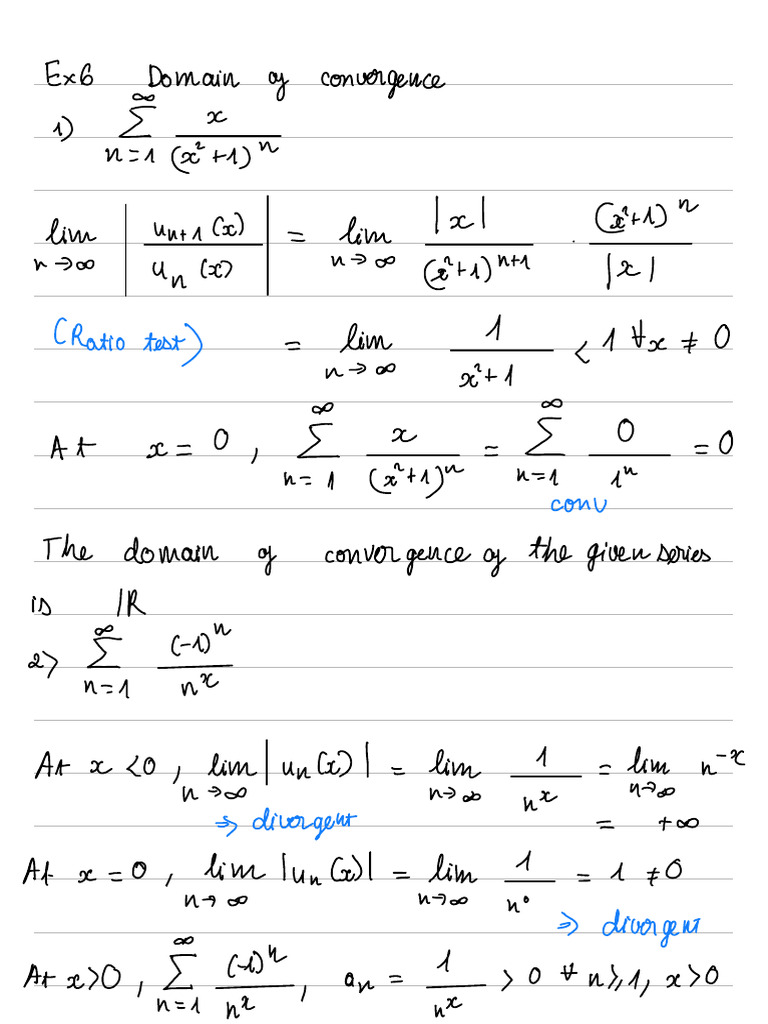 Ex6 Domain of convergence
1) \sum_{n=1}^{\infty} \frac{x}{(x^2+1)^n}
\lim_{n \to \infty} \left| \frac{u_{n+1}(x)}{u_n(x)} \right| = \lim_{n \to \infty} \frac{|x|}{(x^2+1)^{n+1}} \cdot \frac{(x^2+1)^n}{|x|}
(Ratio test) = \lim_{n \to \infty} \frac{1}{x^2+1} < 1 ∀x ≠ 0
At x = 0, \sum_{n=1}^{\infty} \frac{x}{(x^2+1)^n} = \sum_{n=1}^{\infty} \frac{0}{1^n} = 0
conv
The domain of convergence of the given series
is ℝ
2) \sum_{n=1}^{\infty} \frac{(-1)^n}{n^x}
At x < 0, \lim_{n \to \infty} |u_n(x)| = \lim_{n \to \infty} \frac{1}{n^x} = \lim_{n \to \infty} n^{-x}
⇒ divergent = +∞
At x = 0, \lim_{n \to \infty} |u_n(x)| = \lim_{n \to \infty} \frac{1}{n^0} = 1 ≠ 0
⇒ divergent
At x > 0, \sum_{n=1}^{\infty} \frac{(-1)^n}{n^x}, a_n = \frac{1}{n^x} > 0 ∀ n ≥ 1, x > 0